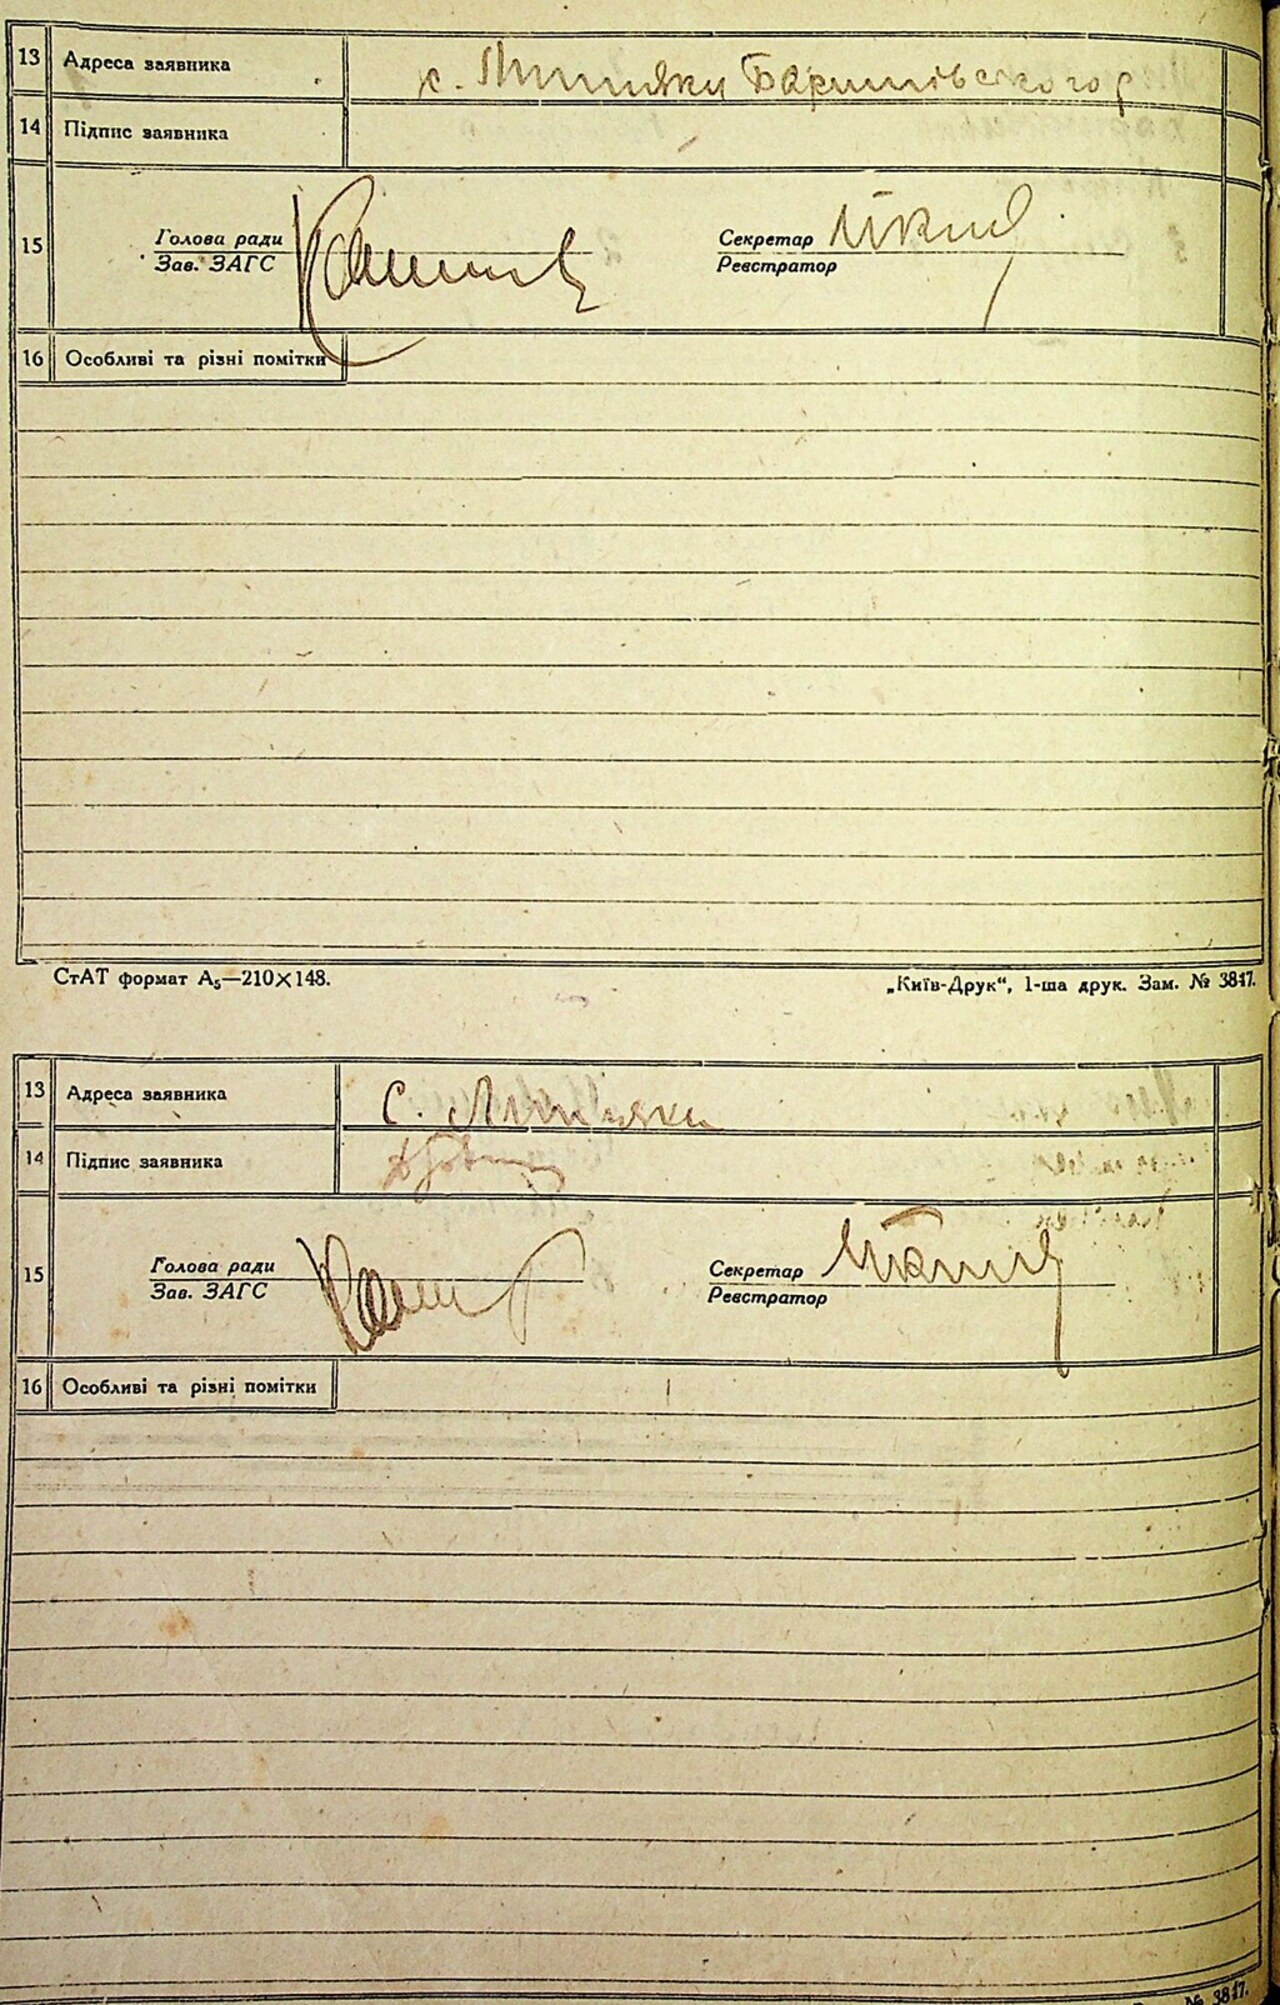 13 Адреса заявника с. Липняки Баришівського р
14 Підпис заявника
15 Голова ради Секретар
Зав. ЗАГС Реєстратор
16 Особливі та різні помітки
СтАТ формат А₅—210×148. „Київ-Друк“, 1-ша друк. Зам. № 3847.
13 Адреса заявника С.
14 Підпис заявника
15 Голова ради Секретар
Зав. ЗАГС Реєстратор
16 Особливі та різні помітки
№ 3847.